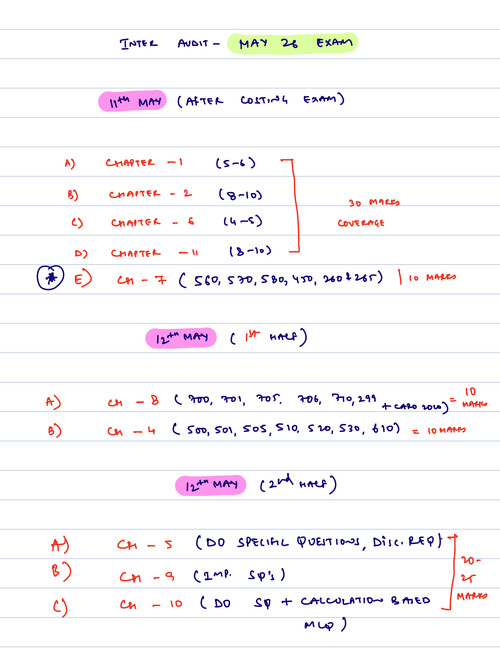 INTER AUDIT - MAY 26 EXAM
11th MAY (AFTER COSTING EXAM)
A) CHAPTER - 1 (5-6)
B) CHAPTER - 2 (8-10)
C) CHAPTER - 6 (4-5)
D) CHAPTER - 11 (8-10)
30 MARKS
COVERAGE
* E) CH - 7 (560, 570, 580, 450, 260 & 265) 10 MARKS
12th MAY (1st HALF)
A) CH - 8 (700, 701, 705, 706, 710, 299 + CARO 2020) = 10 MARKS
B) CH - 4 (500, 501, 505, 510, 520, 530, 610) = 10 MARKS
12th MAY (2nd HALF)
A) CH - 5 (DO SPECIFIC QUESTIONS, DISC. REQ)
B) CH - 9 (IMP. SQ'S)
C) CH - 10 (DO SQ + CALCULATION BASED
MCQ)
20-
25
MARKS